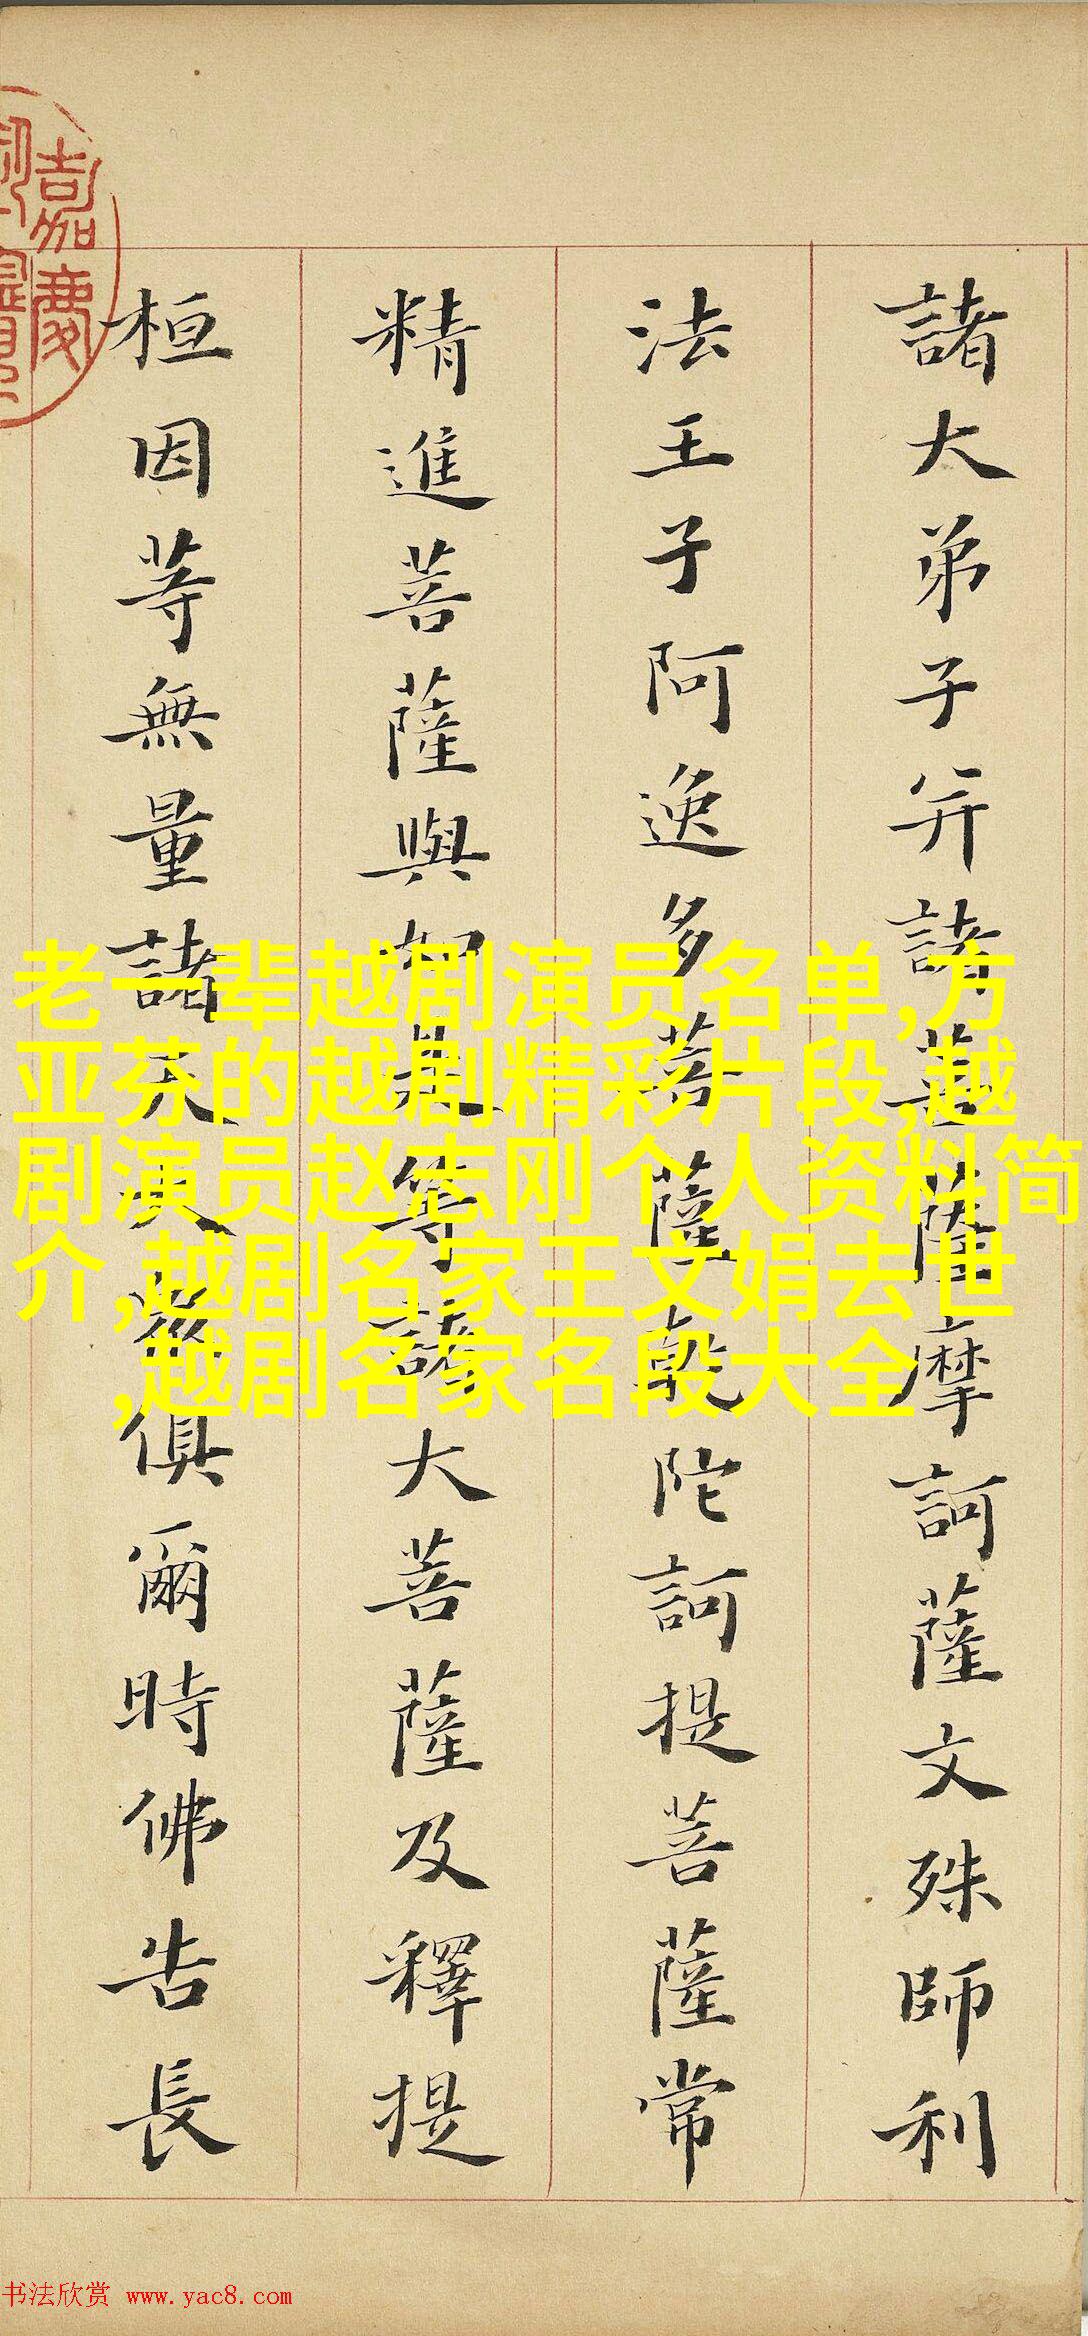 諸大弟子并諸菩薩摩訶薩文殊師利
法王子阿逸多菩薩乾陀訶提菩薩常
精進菩薩與如是等諸大菩薩及釋提
桓因等無量諸天大眾俱爾時佛告長
嘉慶
老一辈越剧演员名单,方
亚芬的越剧精彩片段,越
剧演员赵志刚个人资料简
介,越剧名家王文娟去世
,越剧名家名段大全
书法欣赏 www.yac8.com